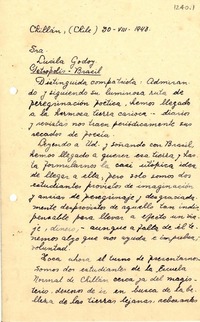 12A0.1
Chillán, (Chile) 30-VIII-1943.
Sra
Lucila Godoy
Petrópolis - Brasil
Distinguida compatriota: Admiran-
do y siguiendo su luminosa ruta de
peregrinación poética, hemos llegado
a la hermosa tierra carioca - diarios
y revistas nos traen periódicamente sus
recados de poesía.
Leyendo a Ud. y soñando con Brasil,
hemos llegado a querer esa tierra y has-
ta formularnos la casi utópica idea
de llegar a ella, pero solo somos dos
estudiantes provistos de imaginación
y ansias de peregrinaje, desgraciada-
mente desprovistos de aquello tan indis-
pensable para llevar a efecto un via-
je, dinero, - aunque a falta de él te-
nemos algo que nos ayuda e impulsa,
voluntad.
Toca ahora el turno de presentarnos
somos dos estudiantes de la Escuela
Normal de Chillán cerca ya del magis-
terio, deseosos de ir en busca de la be-
lleza de las tierras lejanas, rebosantes